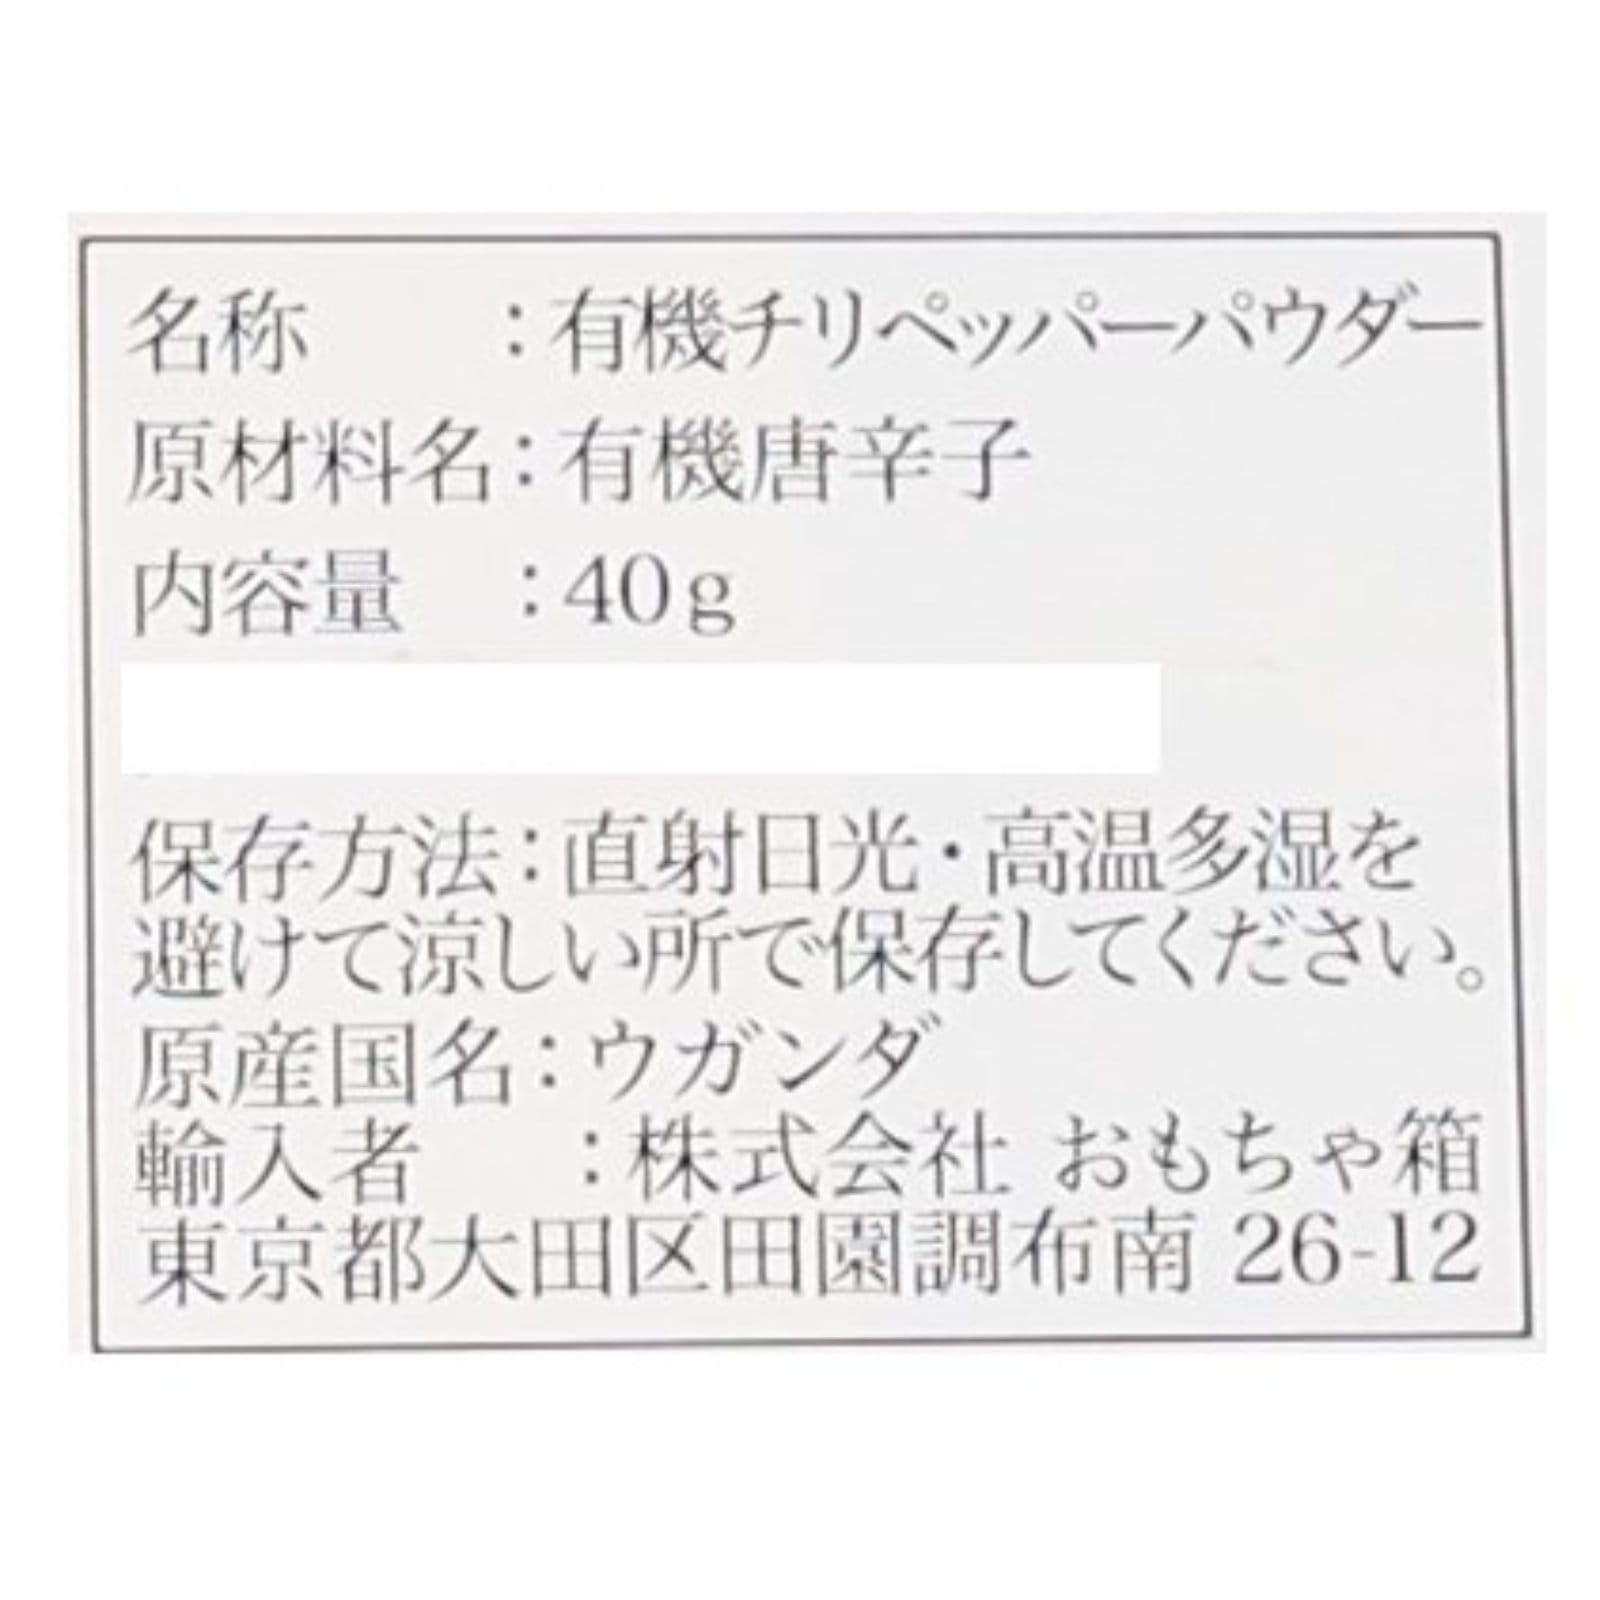 名称　　：有機チリペッパーパウダー
原材料名：有機唐辛子
内容量　：40g
保存方法：直射日光・高温多湿を
避けて涼しい所で保存してください。
原産国名：ウガンダ
輸入者　：株式会社 おもちゃ箱
東京都大田区田園調布南 26-12